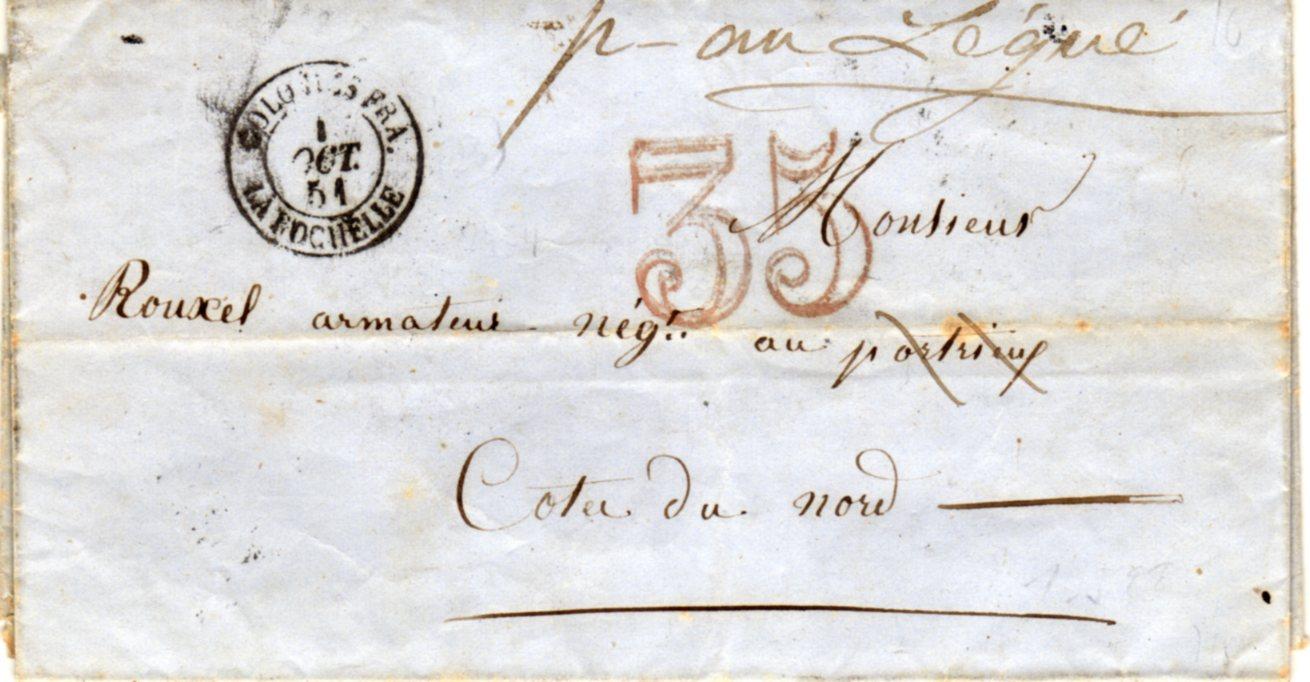 p - au Légué
COLONIES FRA.
1
OCT.
51
LA ROCHELLE
35
Monsieur
Rouxel armateur - négt. au portrieux
Cotes du nord